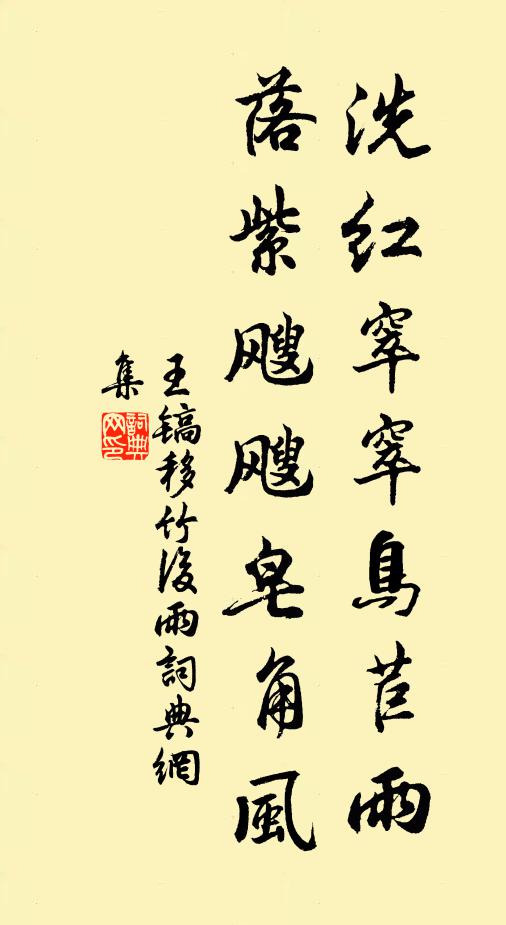 洗红窣窣鳥苣雨
落紫飕飕皂角風
王镐移竹後雨詞典網
集
詞典
网印